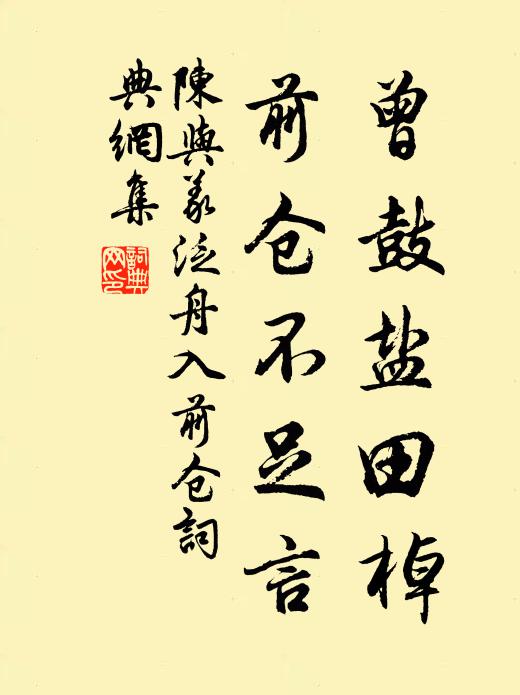 曾鼓盐田棹
前仓不足言
陳與义泛舟入前仓詞
典網集
詞典网印